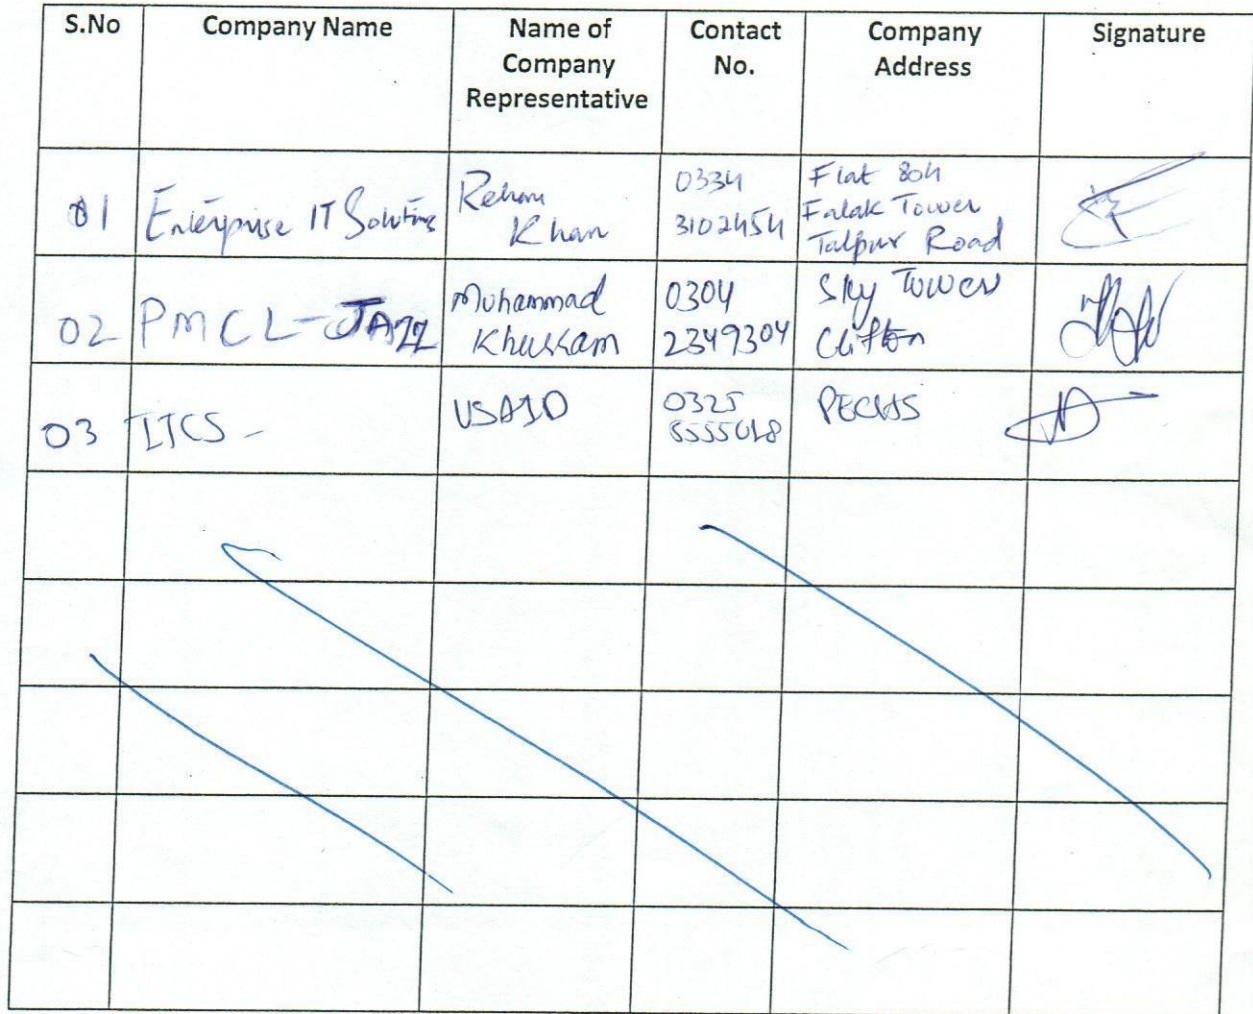 S.No Company Name Name of Company Representative Contact No. Company Address Signature
01 Enterprise IT Solutions Rehan Khan 0334 3102454 Flat 804 Falak Tower Talpur Road
02 PMCL-JAZZ Muhammad Khurram 0304 2349304 Sky Tower Clifton
03 0325 PECHS